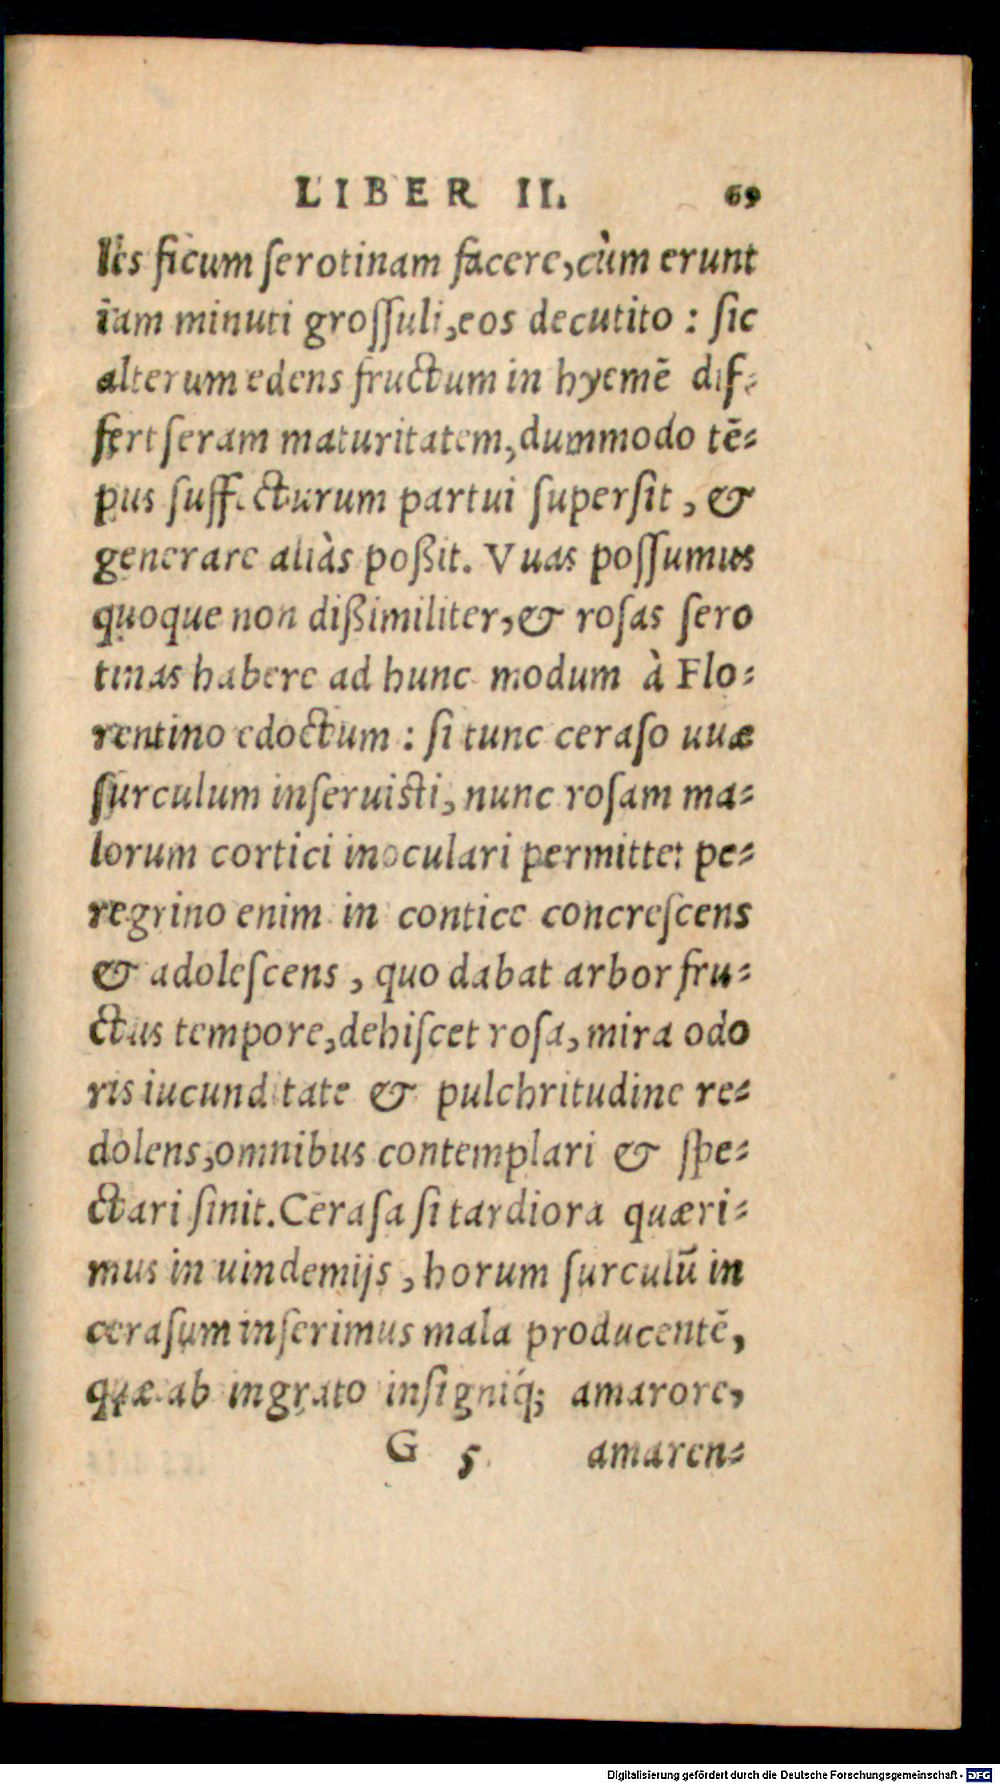 LIBER II. 69
les ficum ſerotinam facere, cùm erunt
iam minuti groſſuli, eos decutito : ſic
alterum edens fructum in hyemē dif-
fert ſeram maturitatem, dummodo tē-
pus ſuffecturum partui ſuperſit, &
generare aliàs poßit. Vuas poſſumus
quoque non dißimiliter, & roſas ſero
tinas habere ad hunc modum à Flo-
rentino edoctum : ſi tunc ceraſo uuæ
ſurculum inſeruiſti, nunc roſam ma-
lorum cortici inoculari permitte: pe-
regrino enim in contice concreſcens
& adoleſcens, quo dabat arbor fru-
ctus tempore, dehiſcet roſa, mira odo
ris iucunditate & pulchritudine re-
dolens, omnibus contemplari & ſpe-
ctari ſinit. Ceraſa ſi tardiora quæri-
mus in uindemijs, horum ſurculū in
ceraſum inſerimus mala producentē,
quæ ab ingrato inſigniq́; amarore,
G 5 amaren-
Digitalisierung gefördert durch die Deutsche Forschungsgemeinschaft - DFG